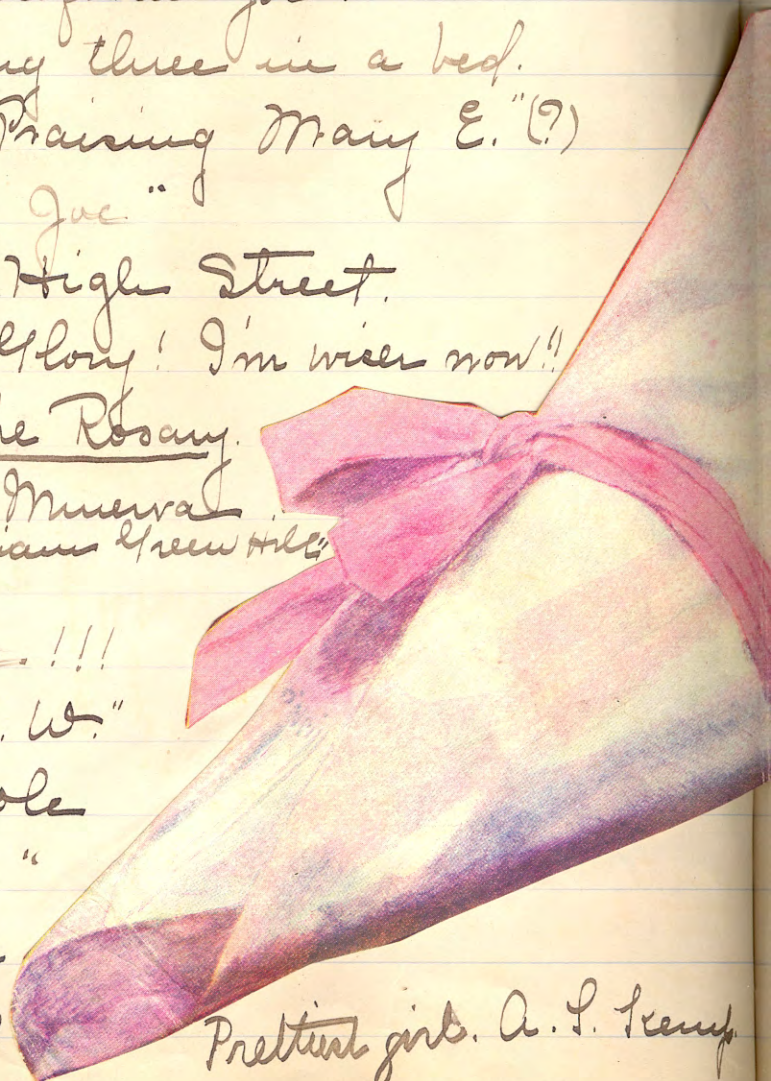 three in a bed.
Praising Mary E." (?)
Joe "
High Street.
Glory! I'm wiser now!!
Rosary.
Minerva
Green Hill"
!!!
W."
"
Prettiest girl. A. S. Kemp.